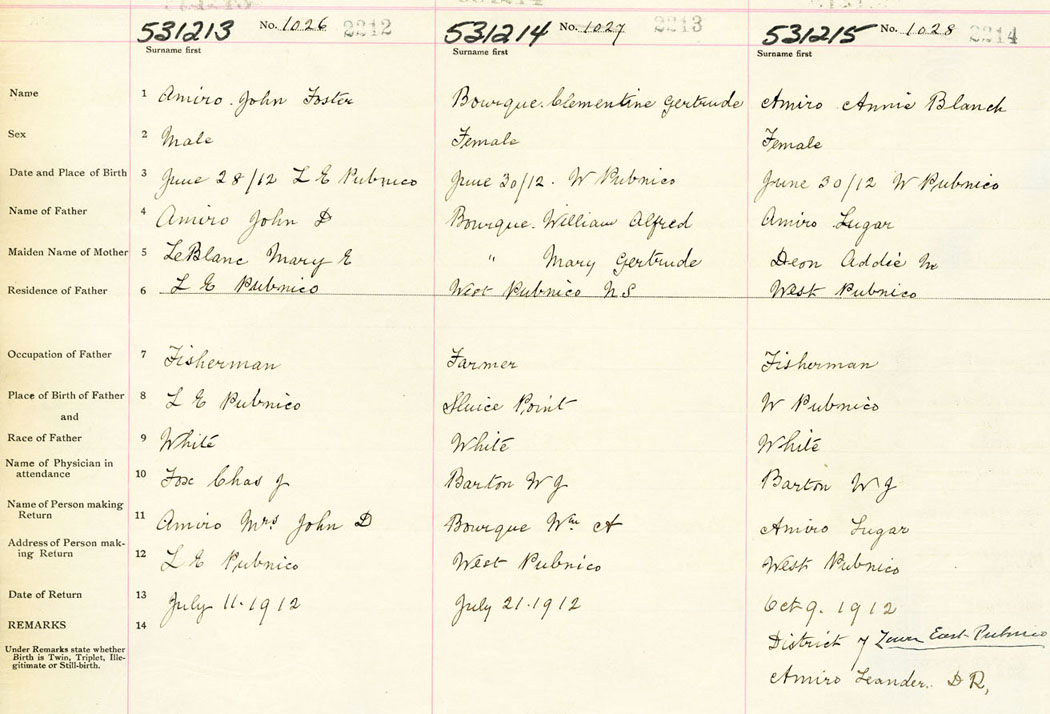 531213 No. 1026 2212 531214 No. 1027 2213 531215 No. 1028 2214
Surname first Surname first Surname first
Name 1 Amiro. John Foster Bourque. Clementine Gertrude Amiro Annie Blanch
Sex 2 Male Female Female
Date and Place of Birth 3 June 28/12 L E Pubnico June 30/12. W Pubnico June 30/12 W Pubnico
Name of Father 4 Amiro John D Bourque. William Alfred Amiro Lugar
Maiden Name of Mother 5 LeBlanc Mary E " Mary Gertrude Deon Addie M
Residence of Father 6 L E Pubnico West Pubnico N S West Pubnico
Occupation of Father 7 Fisherman Farmer Fisherman
Place of Birth of Father 8 L E Pubnico Sluice Point W Pubnico
and
Race of Father 9 White White White
Name of Physician in
attendance 10 Fox Chas J Barton W J Barton W J
Name of Person making
Return 11 Amiro Mrs John D Bourque Wm A Amiro Lugar
Address of Person mak-
ing Return 12 L E Pubnico West Pubnico West Pubnico
Date of Return 13 July 11. 1912 July 21. 1912 Oct 9. 1912
REMARKS 14
Under Remarks state whether
Birth is Twin, Triplet, Ille-
gitimate or Still-birth.
District of Lower East Pubnico
Amiro Leander. D R,